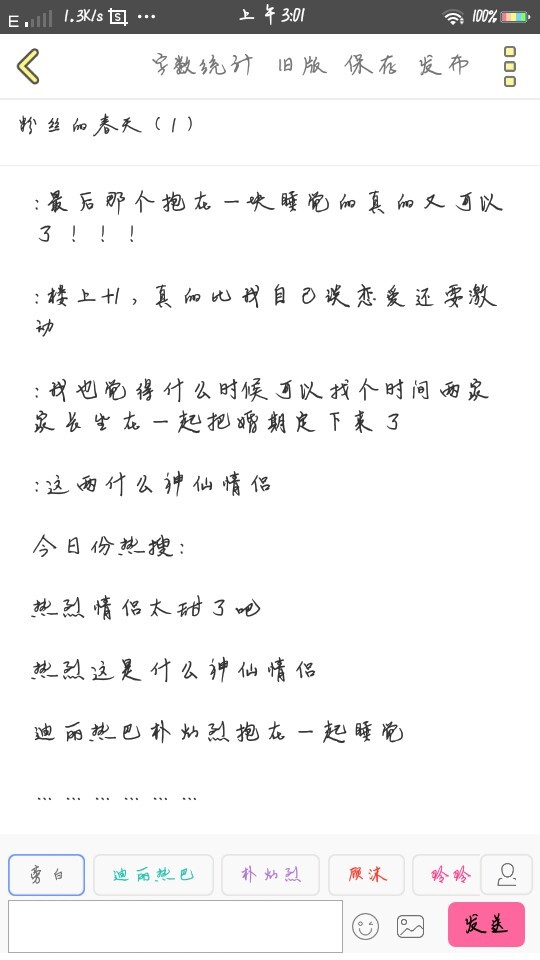 E 1.3K/s S ... 上午3:01 100%
字数统计 旧版 保存 发布
粉丝的春天(1)
:最后那个抱在一块睡觉的真的又可以
了!!!
:楼上+1,真的比我自己谈恋爱还要激
动
:我也觉得什么时候可以找个时间两家
家长坐在一起把婚期定下来了
:这两什么神仙情侣
今日份热搜:
热烈情侣太甜了吧
热烈这是什么神仙情侣
迪丽热巴朴灿烈抱在一起睡觉
… … … … … …
旁白 迪丽热巴 朴灿烈 顾沫 玲玲
发送